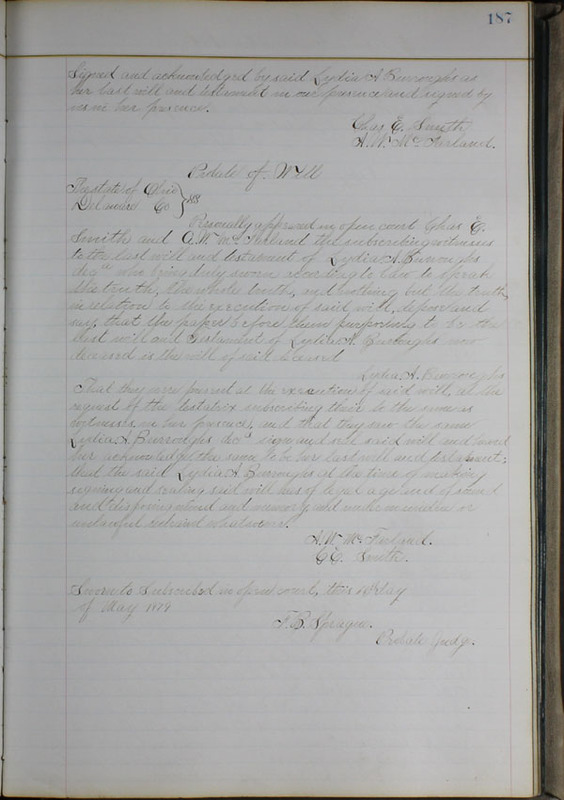 187
Signed and acknowledged by said Lydia A Burroughs as
her last will and testament in our presence and signed by
us in her presence.
Chas E. Smith
A. W. Mc Farland.
Probate of Will
The state of Ohio
Delaware Co } ss
Personally appeared in open court Chas E.
Smith and A. W. Mc Farland the subscribing witnesses
to the last will and testament of Lydia A Burroughs
decd who being duly sworn according to law to speak
the truth, the whole truth, and nothing but the truth,
in relation to the execution of said will, depose and
say, that the paper before them purporting to be the
last will and testament of Lydia A. Burroughs now
deceased is the will of said deceased
Lydia A. Burroughs
That they were present at the execution of said will, at the
request of the testatrix subscribing their to the same as
witnesses in her presence, and that they saw the same
Lydia A. Burroughs decd sign and seal said will and heard
her acknowledge the same to be her last will and testament;
that the said Lydia A. Burroughs at the time of making
signing and sealing said will was of legal age and of sound
and disposing mind and memory and under no undue or
unlawful restraint whatsoever.
A. W. Mc Farland.
C. E. Smith.
Sworn to Subscribed in open court, this day
of May 1879
F. B. Sprague.
Probate Judge.